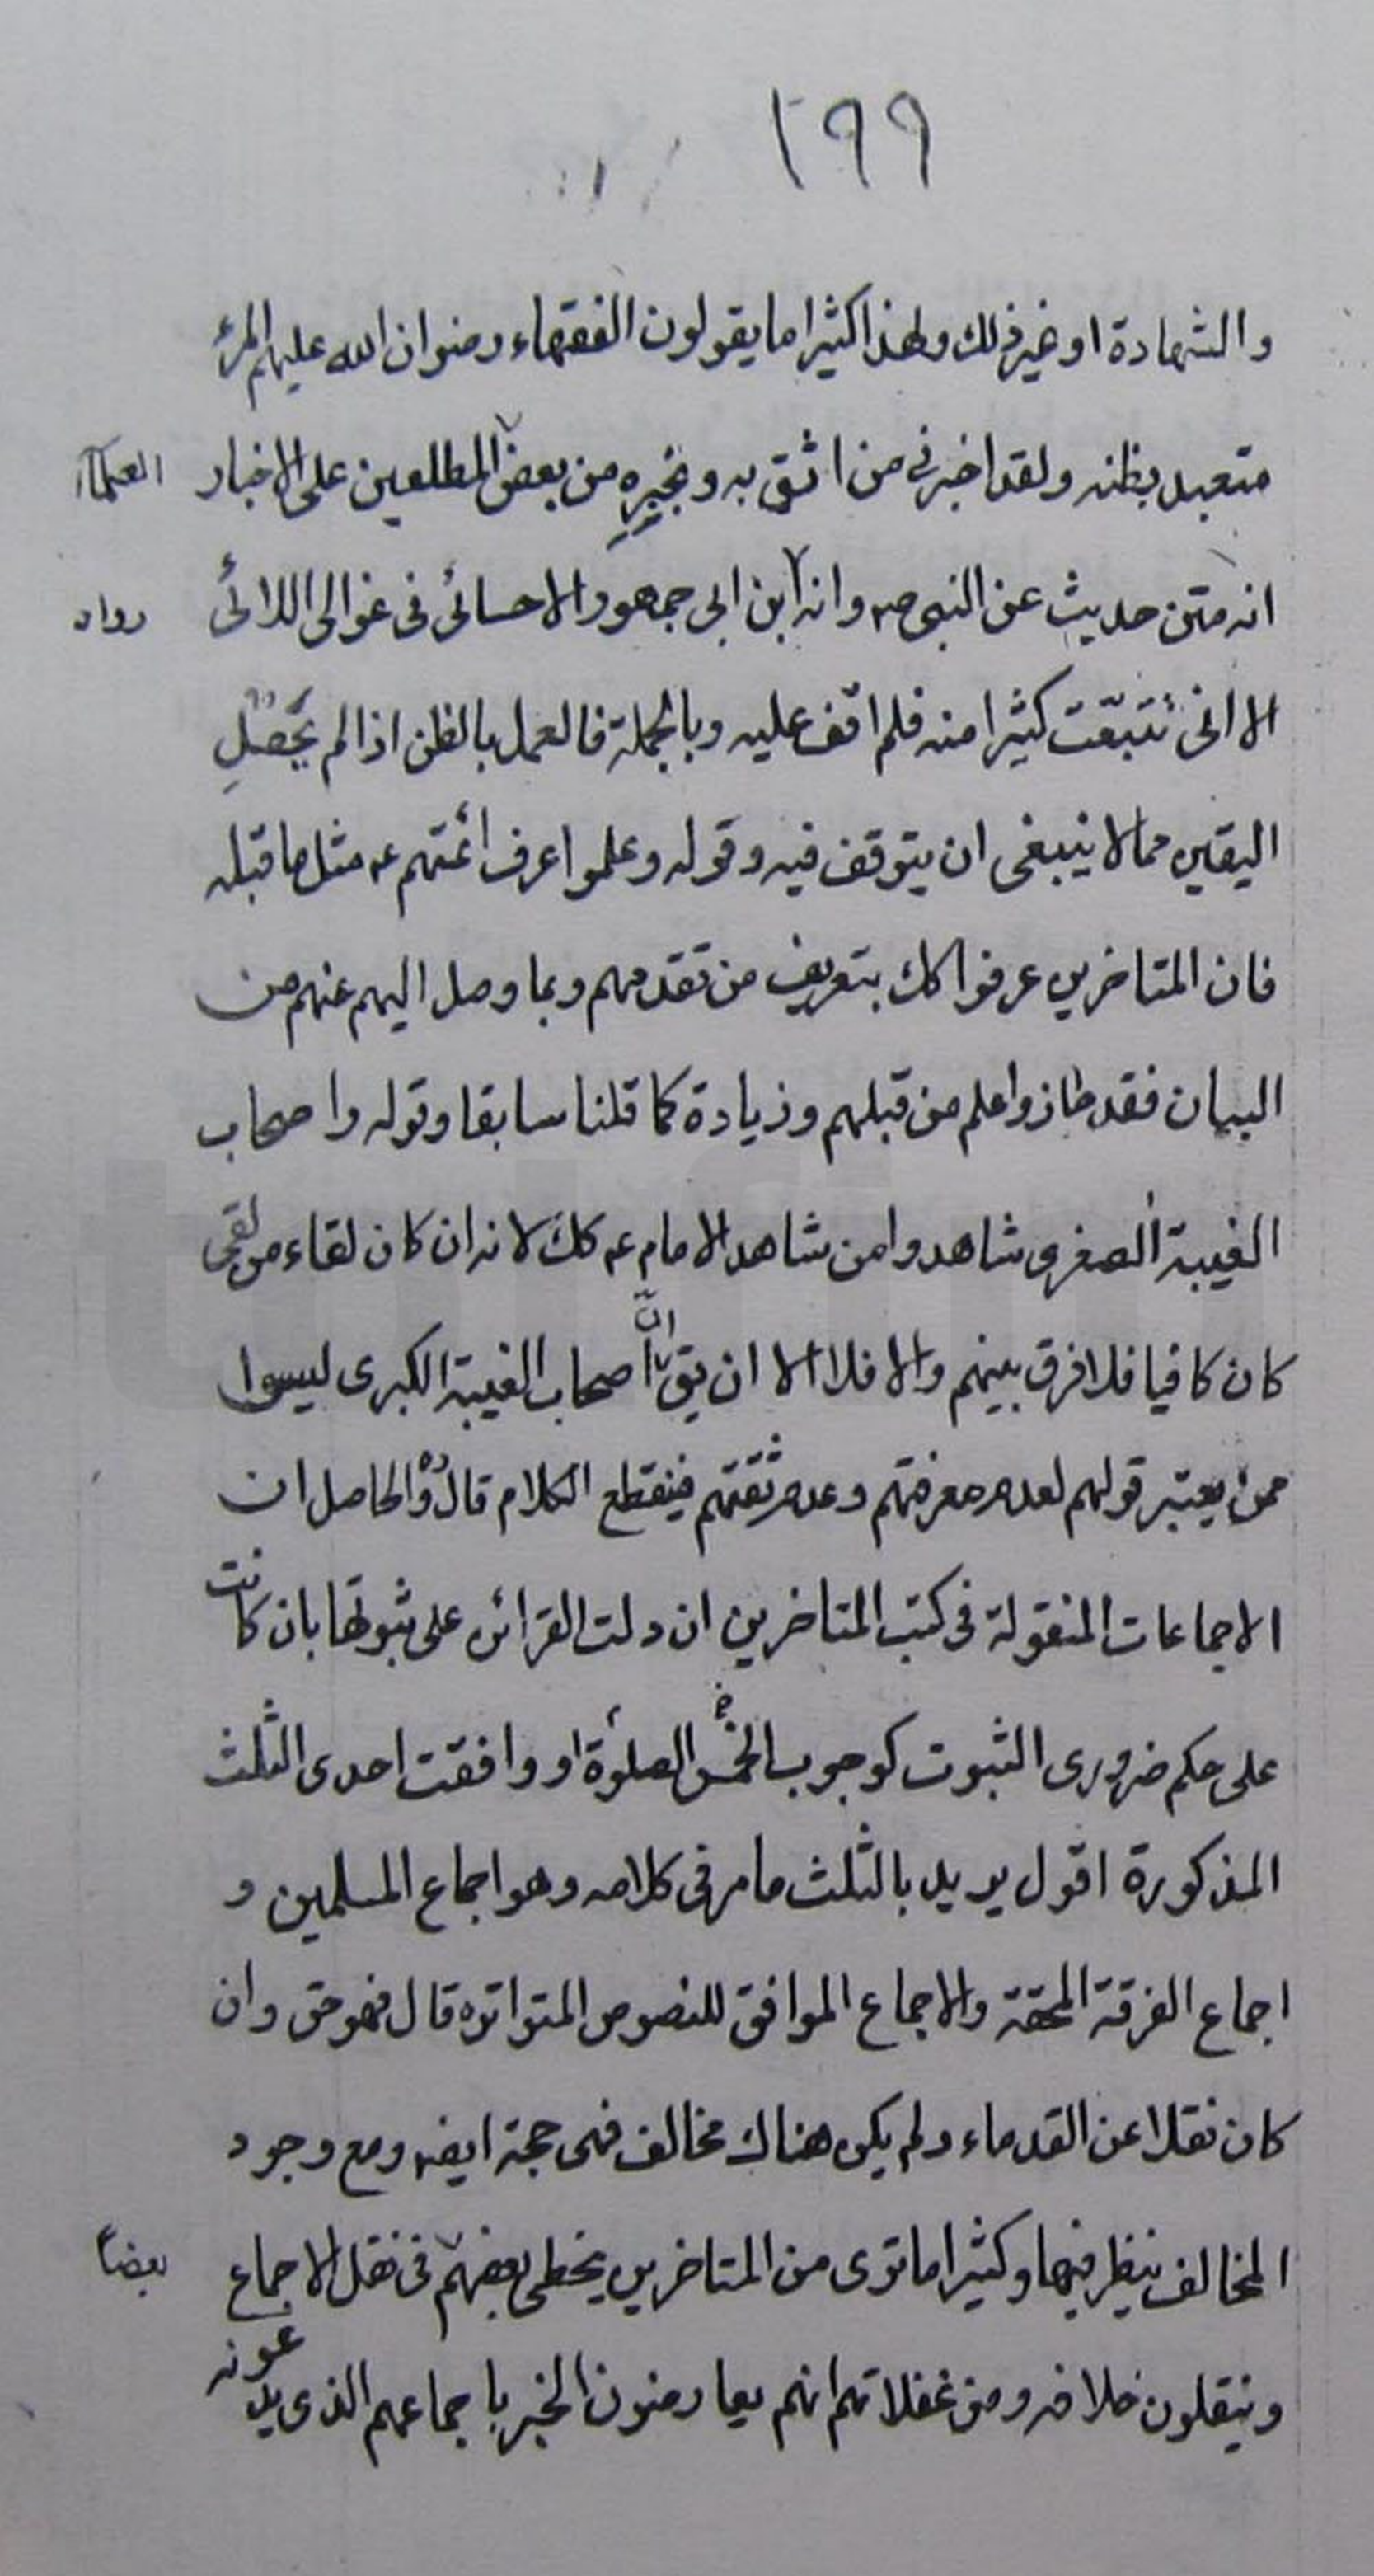 ١٩٩
والشهادة او غير ذلك ولهذا كثيرا ما يقولون الفقهاء رضوان الله عليهم المرء
متعبد بظنه ولقد اخبرني من اثق به وبخبره من بعض المطلعين على الاخبار
العلماء
انه متن حديث عن النبي صم وانه ابن ابي جمهور الاحسائي في غوالي اللائي
رواه
الا اني تتبّعت كثيرا منه فلم اقف عليه وبالجملة فالعمل بالظن اذا لم يحصل
اليقين مما لا ينبغي ان يتوقف فيه وقوله وعلموا عرف ائمتهم ع مثل ما قبله
فان المتاخرين عرفوا كك بتعريف من تقدمهم وبما وصل اليهم عنهم من
البيان فقد حازوا علم من قبلهم وزيادة كما قلنا سابقا وقوله واصحاب
الغيبة الصغرى شاهدوا من شاهد الامام ع كك لانه ان كان لقاء من لقى
كان كافيا فلا فرق بينهم والا فلا الا ان يق انّ اصحاب الغيبة الكبرى ليسوا
ممن يعتبر قولهم لعدم معرفتهم وعدم ثقتهم فينقطع الكلام قال ره والحاصل ان
الاجماعات المنقولة في كتب المتاخرين ان دلت القرائن على ثبوتها بان كانت
على حكم ضروري الثبوت كوجوب الخمس الصلوة او وافقت احدى الثلث
المذكورة اقول يريد بالثلث ما مر في كلامه وهو اجماع المسلمين و
اجماع الفرقة المحقة والاجماع الموافق للنصوص المتواتره قال فهو حق وان
كان نقلا عن القدماء ولم يكن هناك مخالف فهي حجة ايضه ومع وجود
المخالف ينظر فيها وكثيرا ما ترى من المتاخرين يخطي بعضهم في نقل الاجماع
بعضاً
وينقلون خلافه ومن غفلاتهم انهم يعارضون الخبر باجماعهم الذي يدعونه